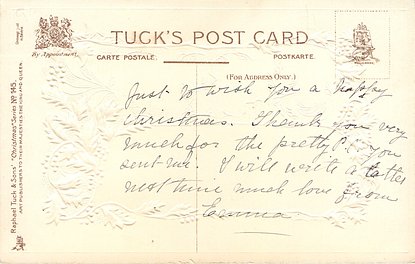 By Appointment.
TUCK'S POST CARD
CARTE POSTALE.
POSTKARTE.
(FOR ADDRESS ONLY.)
Just to wish you a happy
Christmas. Thank you very
much for the pretty P. you
sent me. I will write a letter
next time much love from
Emma
Raphael Tuck & Sons' "Christmas" Series No. 145.
ART PUBLISHERS TO THEIR MAJESTIES THE KING AND QUEEN.